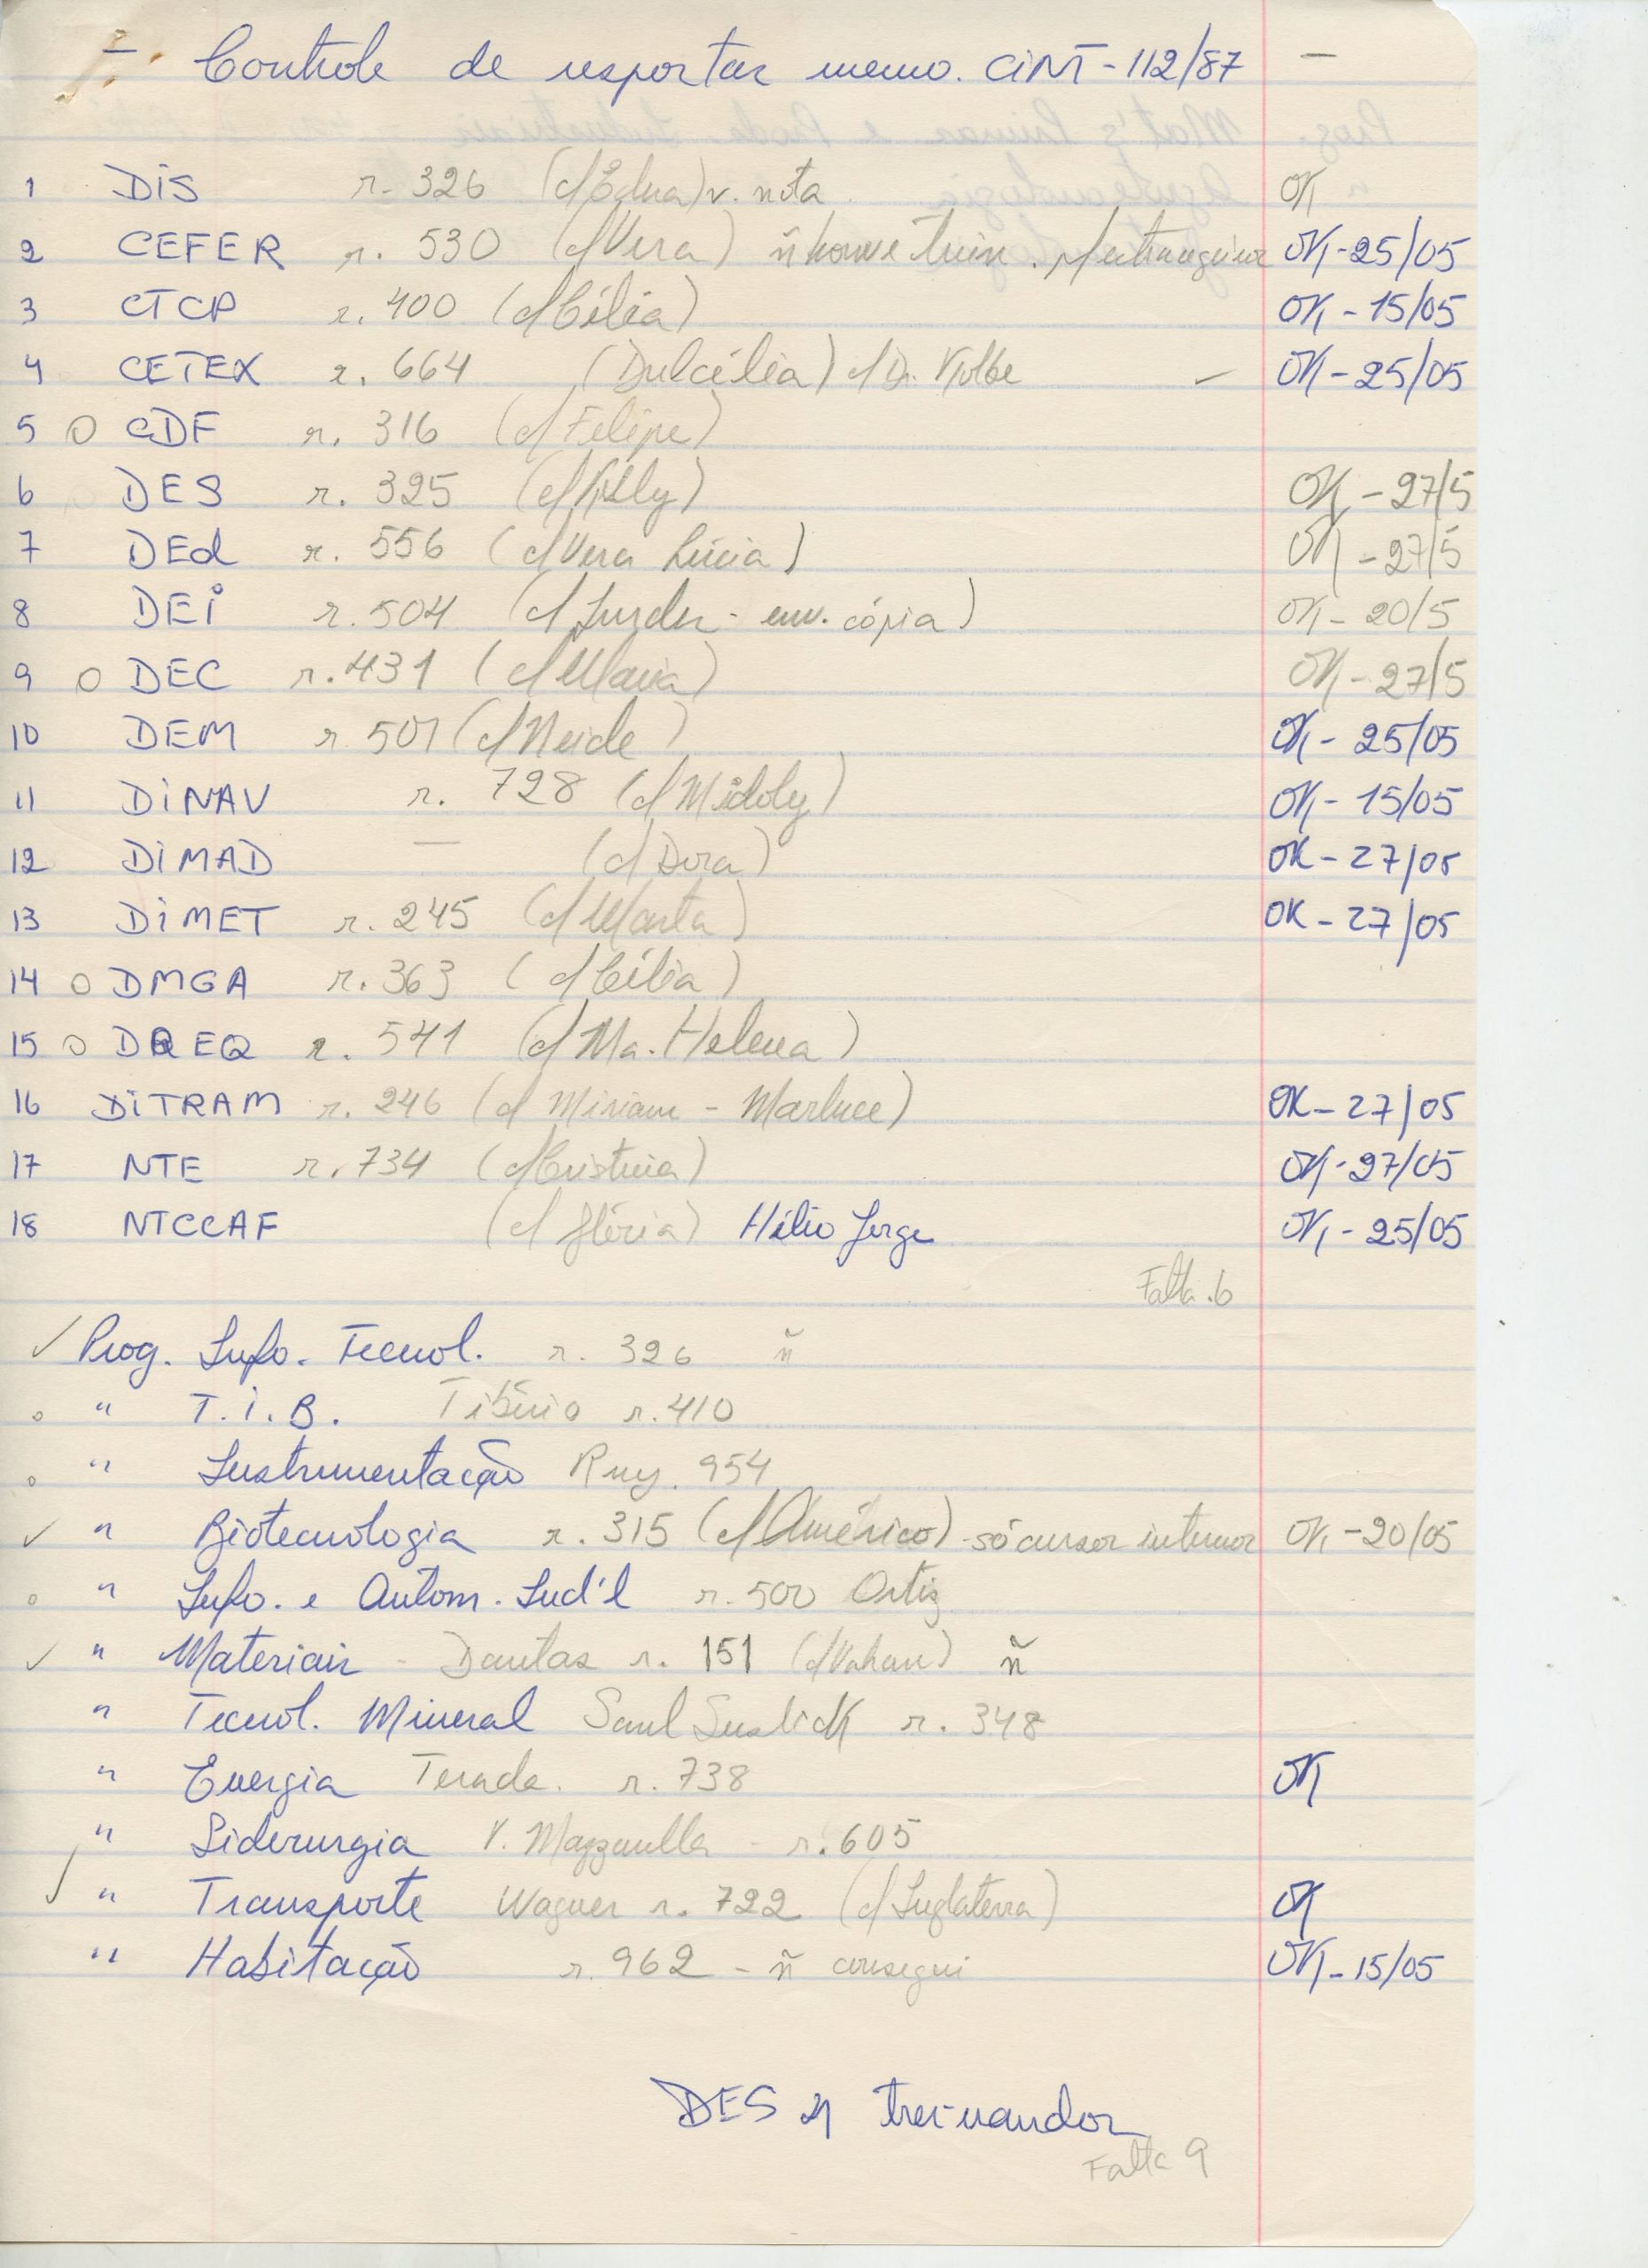 - Controle de respostas memo. CiNT - 112/87 -
1 DiS r. 326 (c/ Edna) v. nota OK
2 CEFER r. 530 (c/ Vera) ñ houve trein. p/ estrangeiros OK - 25/05
3 CTCP r. 400 (c/ Célia) OK - 15/05
4 CETEX r. 664 (Dulcélia) c/ Dr. Kolbe OK - 25/05
5 o CDF r. 316 (c/ Felipe)
6 DES r. 325 (c/ Kelly) OK - 27/5
7 DEd r. 556 (c/ Vera Lúcia) OK - 27/5
8 DEi r. 504 (c/ - env. cópia) OK - 20/5
9 o DEC r. 431 (c/ Maria) OK - 27/5
10 DEM r. 501 (c/ Neide) OK - 25/05
11 DiNAV r. 728 (c/ Midoly) OK - 15/05
12 DiMAD — (c/ Dora) OK - 27/05
13 DiMET r. 245 (c/ Marta) OK - 27/05
14 o DMGA r. 363 (c/ Célia)
15 o DEQ r. 541 (c/ Ma. Helena)
16 DiTRAM r. 246 (c/ Miriam - Marluce) OK - 27/05
17 NTE r. 734 (c/ Cristina) OK - 27/05
18 NTCCAF (c/ Glória) Hélio Jorge OK - 25/05
Falta 6
✓ Prog. Info. Tecnol. r. 326 ñ
o " T.I.B. Tibério r. 410
o " Instrumentação Ruy. 954
✓ " Biotecnologia r. 315 (c/ Américo) - só cursos internos OK - 20/05
o " Info. e Autom. Ind'l r. 500 Ortiz
✓ " Materiais - Dantas r. 151 (c/ Vahan) ñ
" Tecnol. Mineral Saul Suslick r. 348
" Energia Terada. r. 738 OK
" Siderurgia V. Mazzarella - r. 605
✓ " Transporte Wagner r. 722 (c/ Inglaterra) OK
" Habitação r. 962 - ñ consegui OK - 15/05
DES 21 treinandos
Falta 9